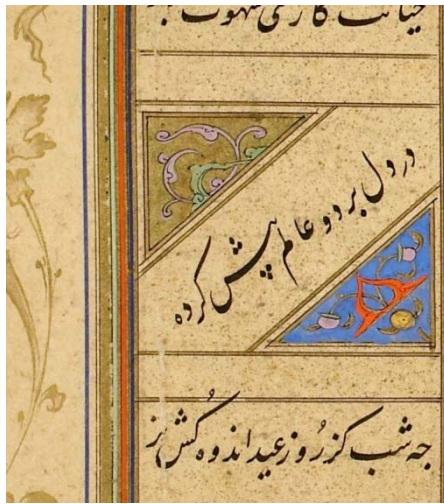 خیانت کاری شهوت
در دل بر دو عالم پیش کرده
چه شب کز روز عید اندوه کش تر